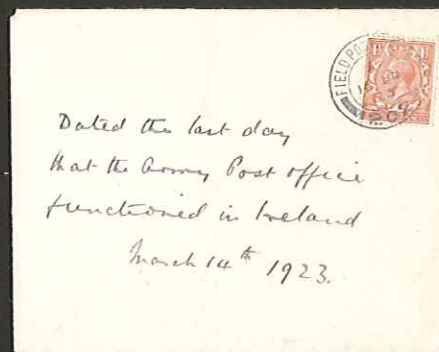 FIELD PO
Dated the last day
that the Army Post office
functioned in Ireland
March 14th 1923.